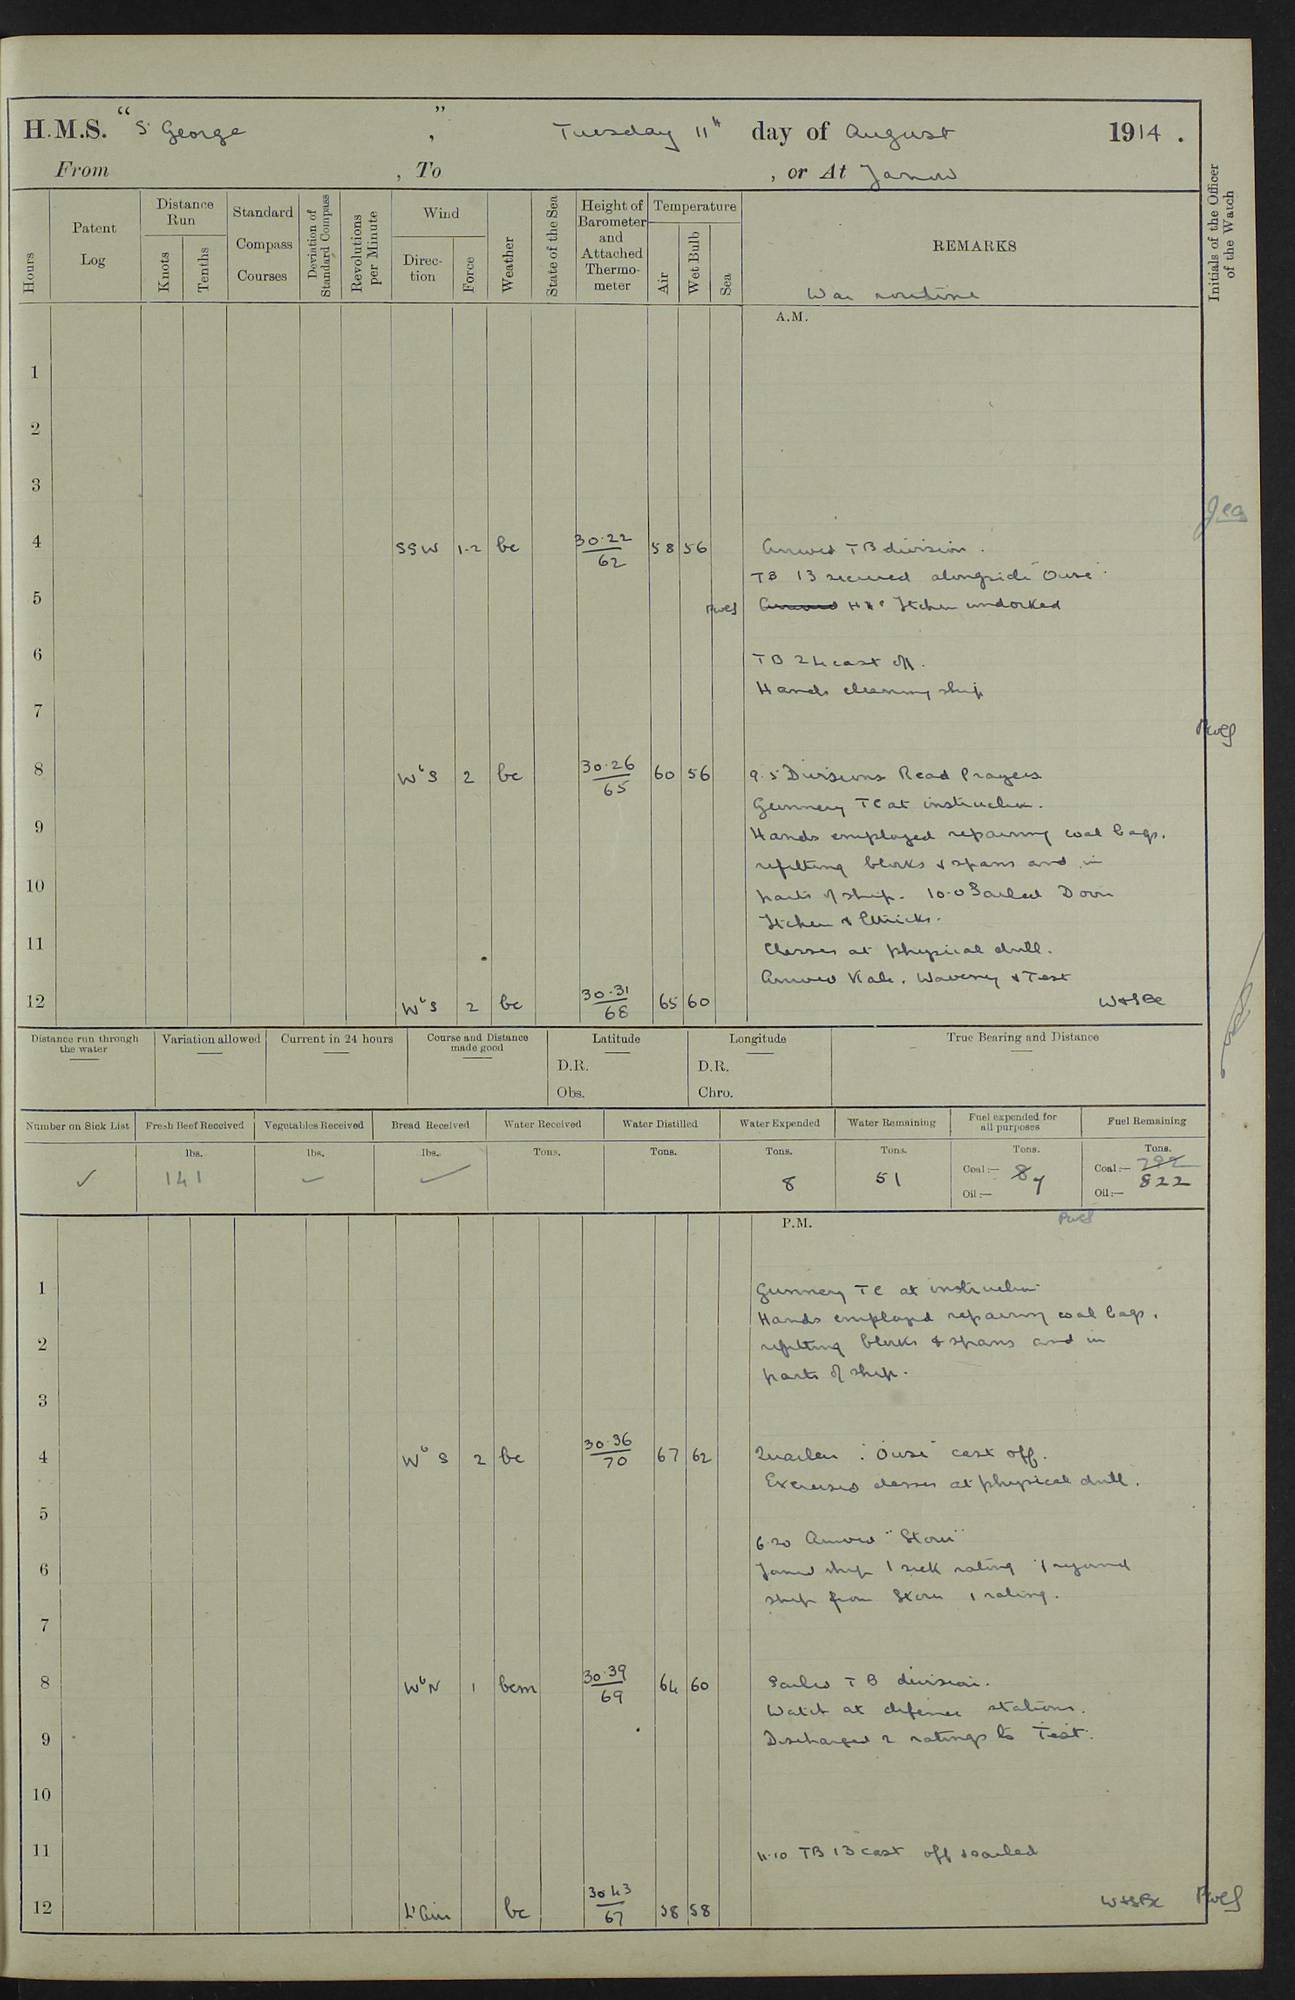 H.M.S. "St George", Tuesday 11th day of August 1914.
From , To , or At Jarrow
Hours
Patent Log
Distance Run
Knots
Tenths
Standard Compass Courses
Deviation of Standard Compass
Revolutions per Minute
Wind
Direction
Force
Weather
State of the Sea
Height of Barometer and Attached Thermometer
Temperature
Air
Wet Bulb
Sea
REMARKS
Initials of the Officer of the Watch
War routine
A.M.
1
2
3
4 SSW 1-2 bc 30.22 62 58 56 Arrived TB division.
TB 13 secured alongside "Ouse".
5 Arrived H.M.S Itchen undocked
6 TB 24 cast off.
Hands cleaning ship
7
8 WbS 2 bc 30.26 65 60 56 9.5 Divisions Read Prayers
Gunnery TC at instruction.
9 Hands employed repairing coal bags.
refitting blocks & spans and in
10 parts of ship. 10.0 Sailed Doon
Itchen & Ettrick.
11 Classes at physical drill.
Arrived Kale, Waveney & Test
12 WbS 2 bc 30.31 68 65 60
Distance run through the water
Variation allowed
Current in 24 hours
Course and Distance made good
Latitude
D.R.
Obs.
Longitude
D.R.
Chro.
True Bearing and Distance
Number on Sick List
Fresh Beef Received
Vegetables Received
Bread Received
Water Received
Water Distilled
Water Expended
Water Remaining
Fuel expended for all purposes
Fuel Remaining
✓
lbs. 141
lbs. ✓
lbs. ✓
Tons.
Tons.
Tons. 8
Tons. 51
Tons.
Coal:— 8 7
Oil:—
Tons.
Coal:— 822
Oil:—
P.M.
1 Gunnery TC at instruction
Hands employed repairing coal bags.
2 refitting blocks & spans and in
parts of ship.
3
4 WbS 2 bc 30.36 70 67 62 Quarters. "Ouse" cast off.
Exercised classes at physical drill.
5
6.20 Arrived "Stour"
6 Joined ship 1 sick rating & rejoined
ship from Stour 1 rating.
7
8 WbN 1 bcm 30.39 69 64 60 Sailed TB division.
Watch at defence stations.
9 Discharged 2 ratings to Test.
10
11 11.10 TB 13 cast off & sailed
12 bc 30.43 67 58 58